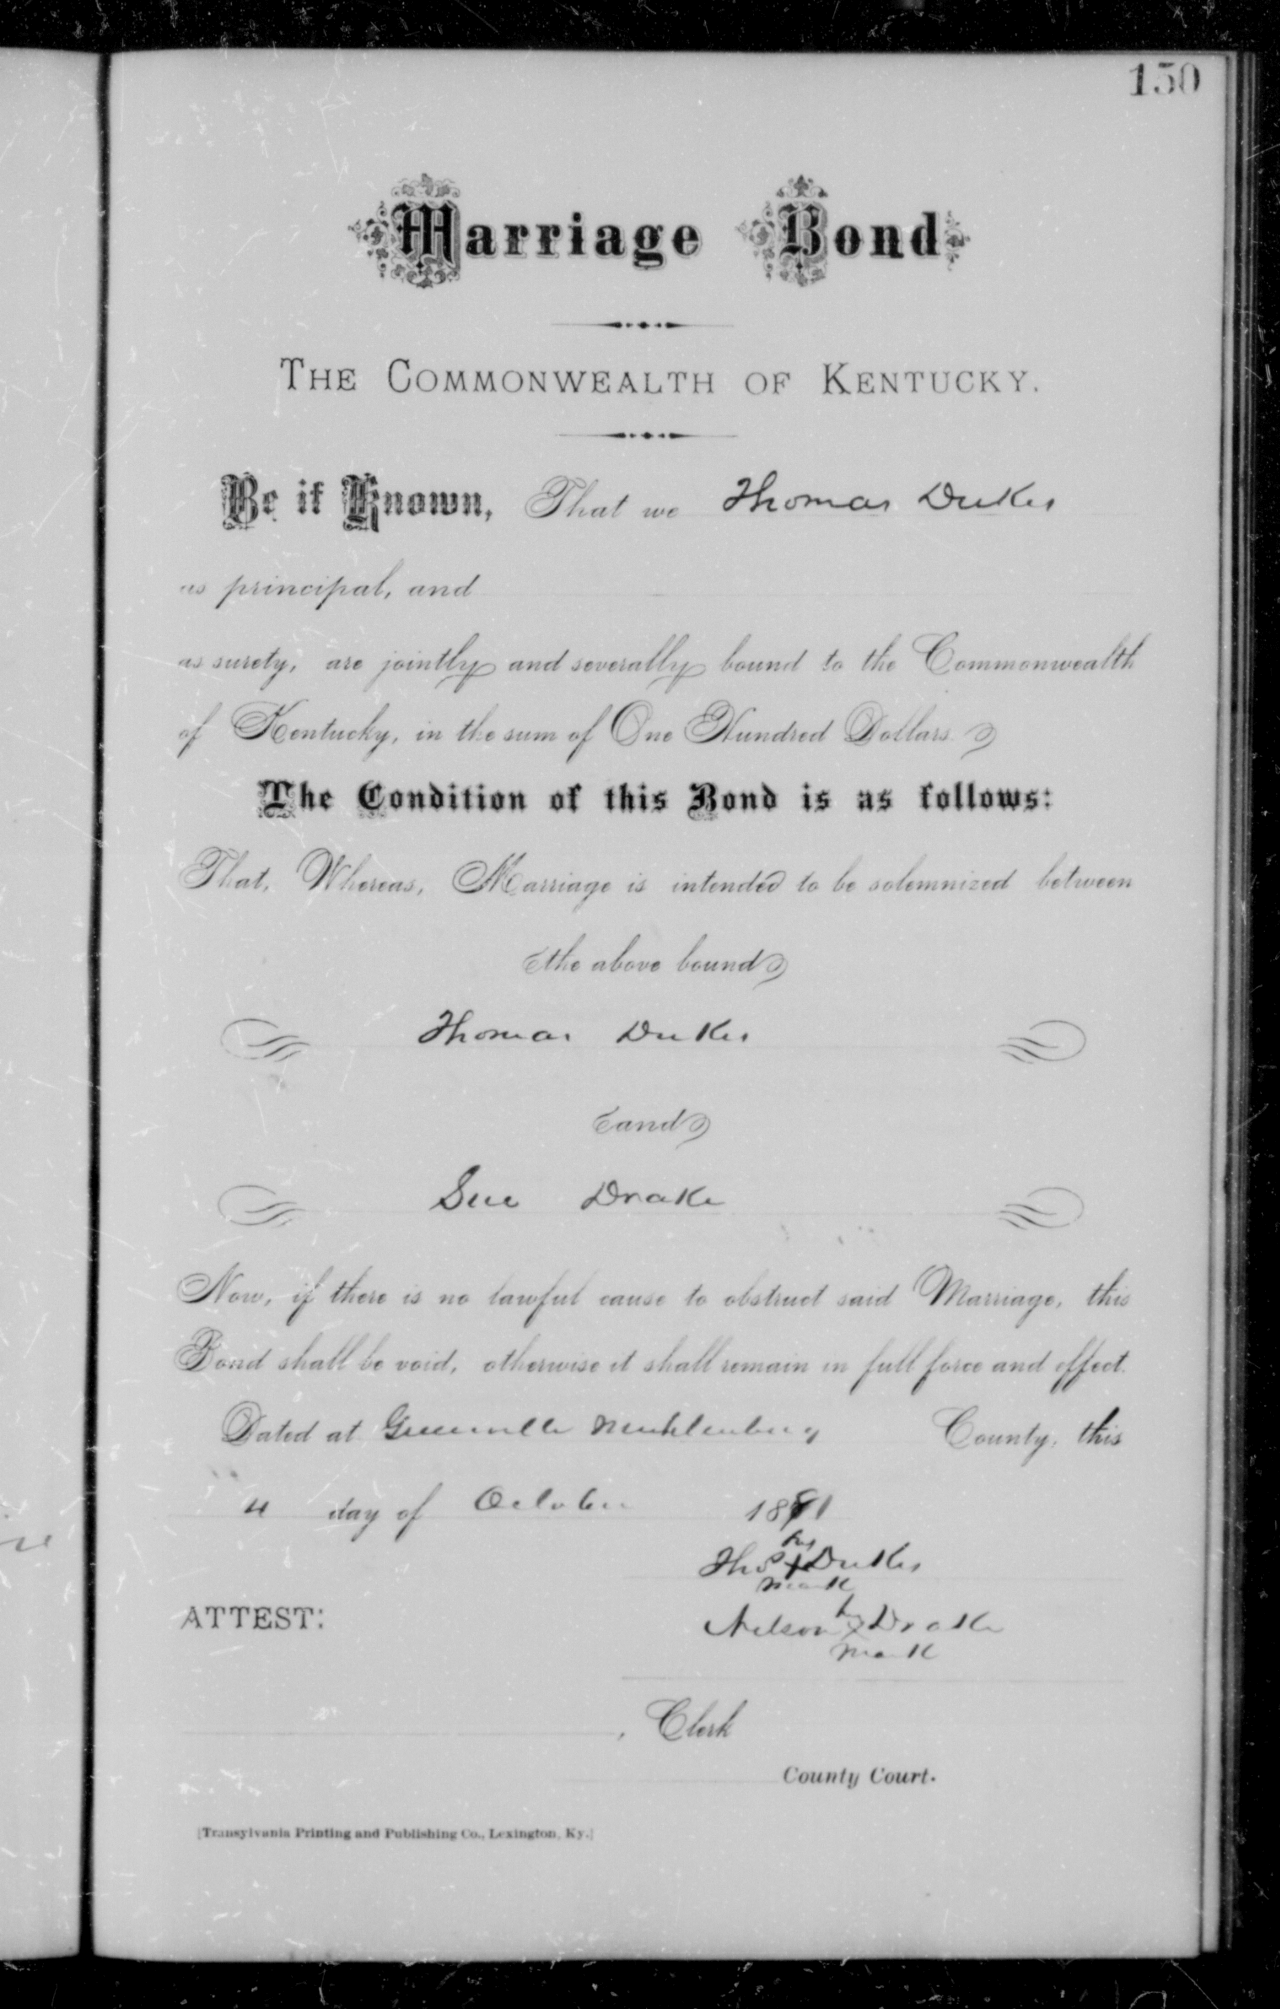 150
Marriage Bond
THE COMMONWEALTH OF KENTUCKY.
Be it Known, That we Thomas Dukes
as principal, and
as surety, are jointly and severally bound to the Commonwealth
of Kentucky, in the sum of One Hundred Dollars.
The Condition of this Bond is as follows:
That, Whereas, Marriage is intended to be solemnized between
the above bound
Thomas Dukes
and
Sue Drake
Now, if there is no lawful cause to obstruct said Marriage, this
Bond shall be void, otherwise it shall remain in full force and effect.
Dated at Greenville Muhlenberg County, this
day of October 1881
his
Thos + Dukes
mark
ATTEST:
his
Nelson x Drake
mark
, Clerk
County Court.
[Transylvania Printing and Publishing Co., Lexington, Ky.]